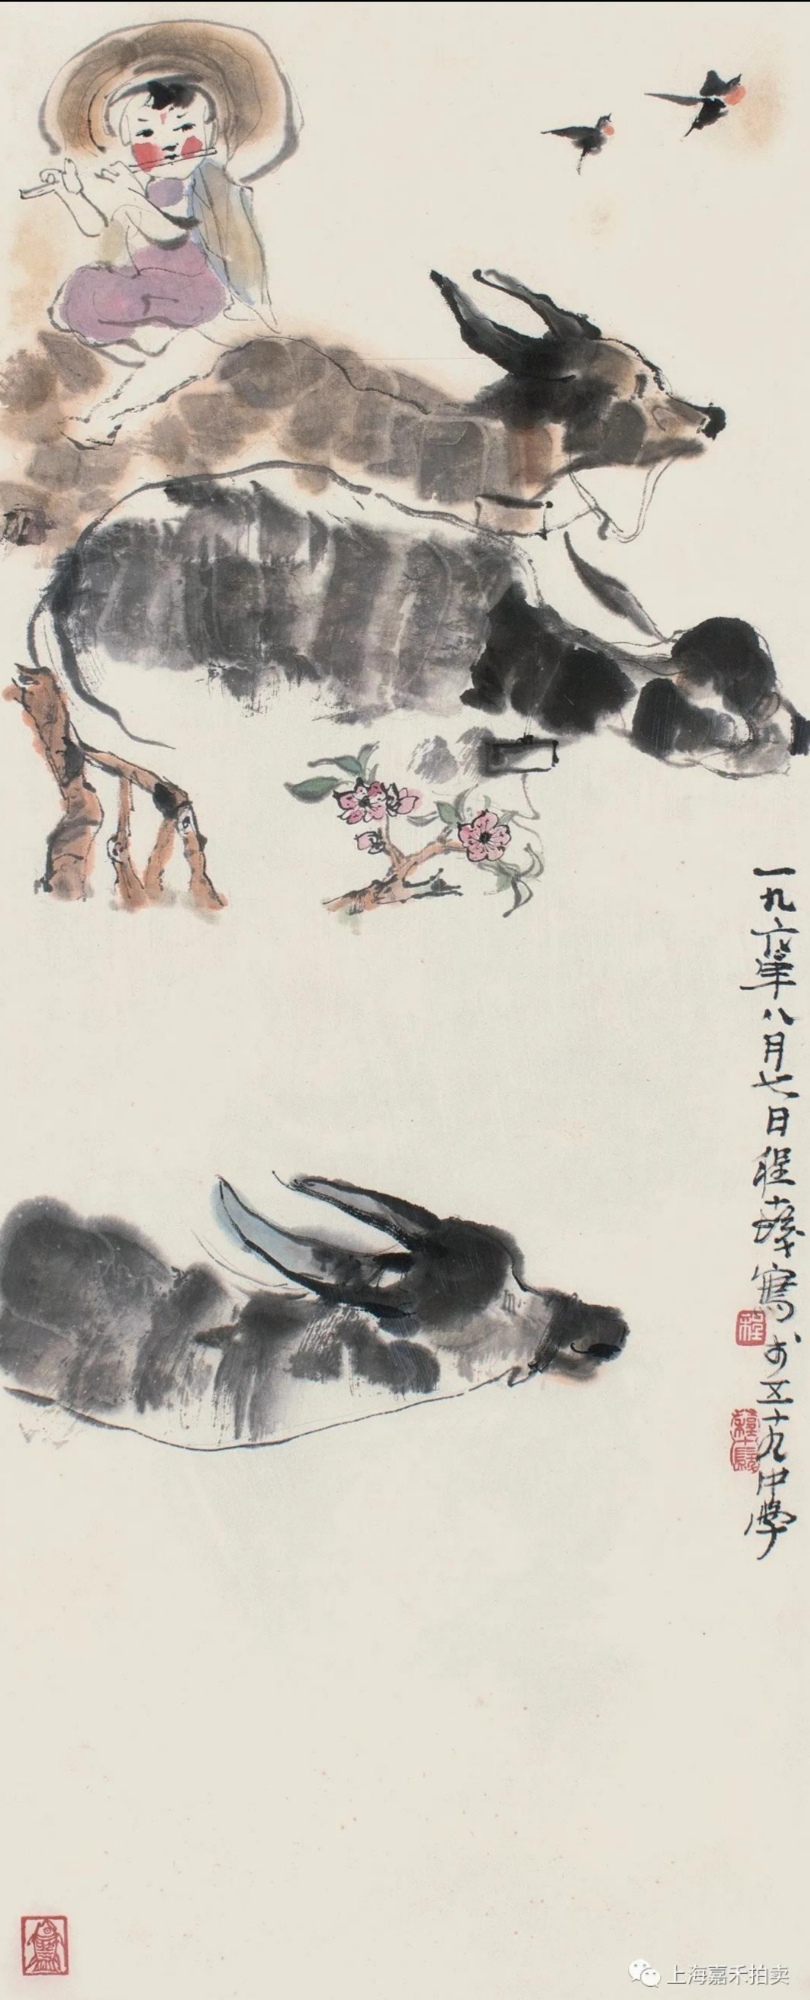 一九六年八月七日程十髮寫于五十九中學
程
上海嘉禾拍卖